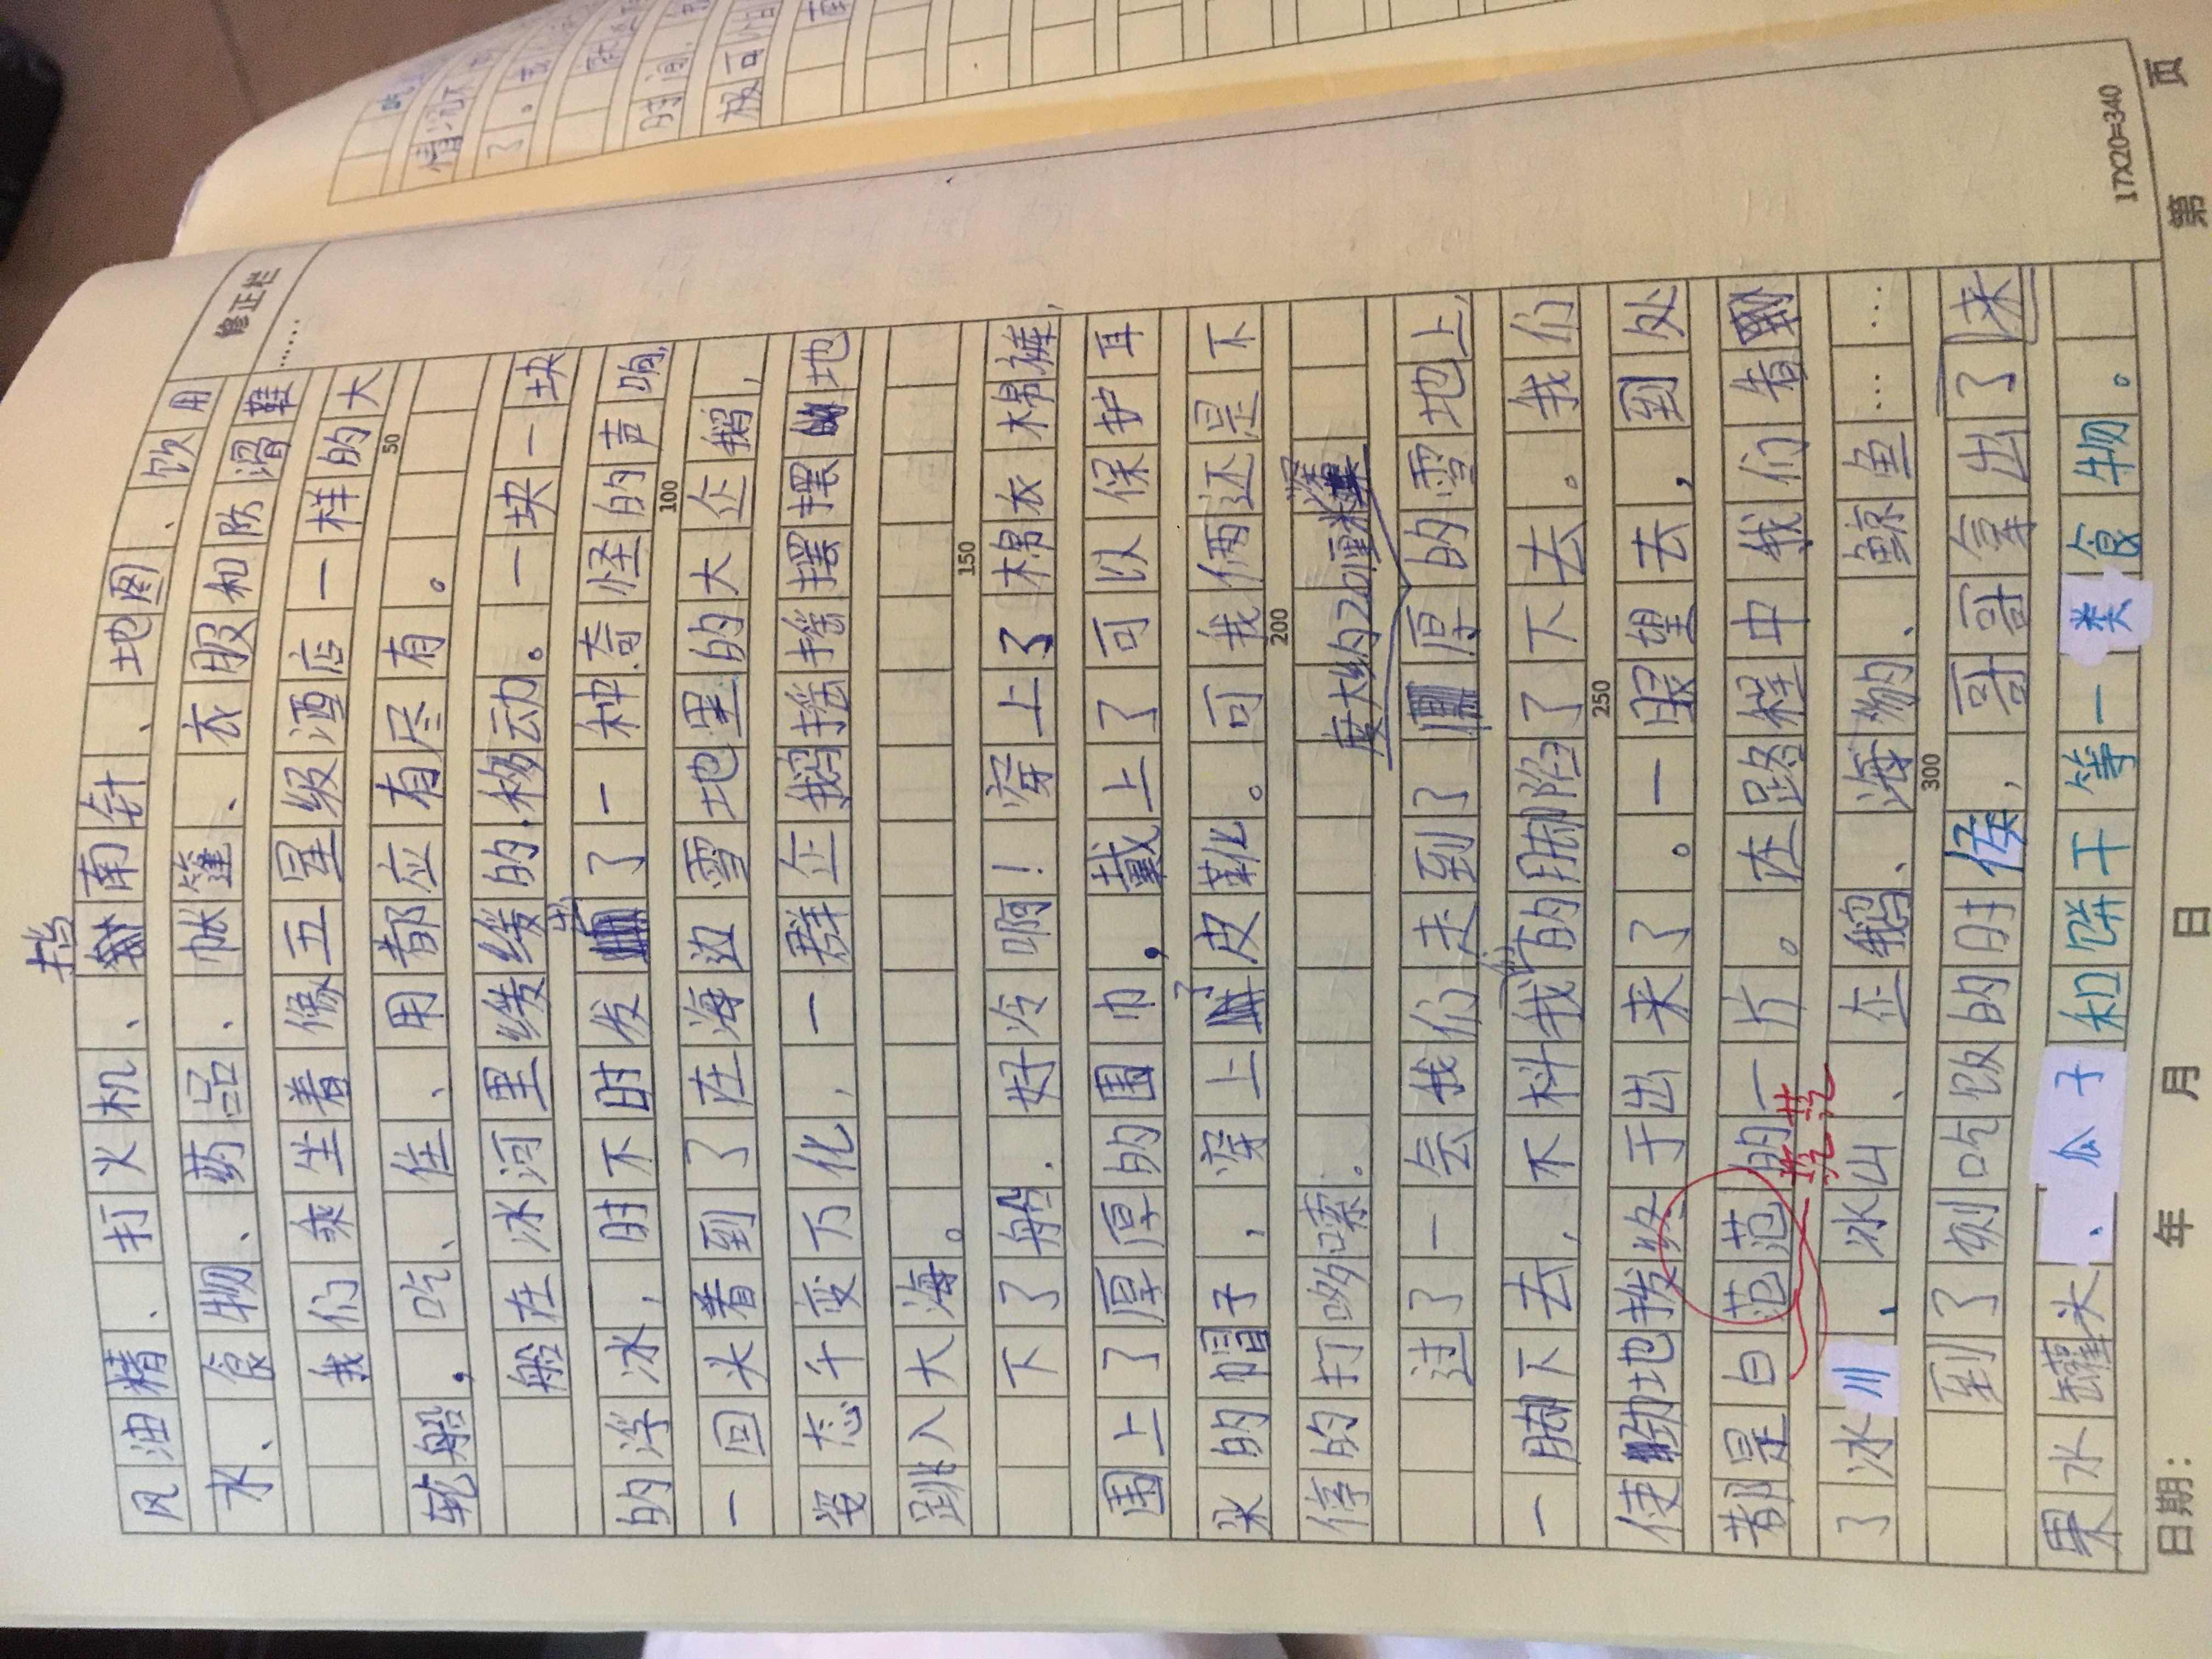 修正栏
……
风油精、打火机、指南针、地图、饮用
水、食物、药品、帐篷、衣服和防滑鞋
我们乘坐着像五星级酒店一样的大
50
轮船，吃、住、用都应有尽有。
船在冰河里缓缓的移动。一块一块
的浮冰，时不时发出了一种奇怪的声响，
100
一回头看到了在海边雪地里的大企鹅，
姿态千变万化，一群企鹅摇摇摆摆地
跳入大海。
150
下了船.好冷啊！穿上了棉衣棉裤，
围上了厚厚的围巾，戴上了可以保护耳
朵的帽子，穿上了皮靴。可我俩还是不
200
停的打哆嗦.
度大约20厘米
过了一会我们走到了厚的雪地上，
一脚下去，不料我们的脚陷了下去。我们
250
使劲地拨终于出来了。一眼望去，到处
都是白范范的一片。在路程中我们看到
茫茫
了冰川、冰山、企鹅、海豹、鲸鱼……
300
到了刻吃饭的时候，哥哥拿出了来
果水罐头、瓜子和饼干等一类食物。
17X20=340
日期： 年 月 日 第 页